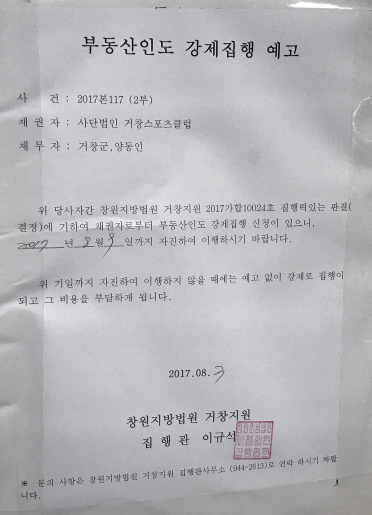 부동산인도 강제집행 예고
사 건 : 2017본117 (2부)
채 권 자 : 사단법인 거창스포츠클럽
채 무 자 : 거창군,양동인
위 당사자간 창원지방법원 거창지원 2017가합10024호 집행력있는 판결(
결정)에 기하여 채권자로부터 부동산인도 강제집행 신청이 있으니,
2017 년 8 월 9 일까지 자진하여 이행하시기 바랍니다.
위 기일까지 자진하여 이행하지 않을 때에는 예고 없이 강제로 집행이
되고 그 비용을 부담하게 됩니다.
2017.08.3
창원지방법원 거창지원
집 행 관 이규석
※ 문의 사항은 창원지방법원 거창지원 집행관사무소 (944-2613)로 연락 하시기 바랍
니다.